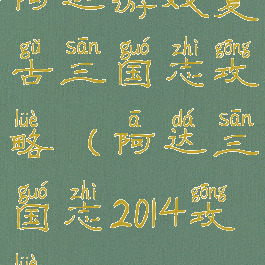 阿达游戏复
gǔ sān guó zhì gōng
古三国志攻
lüè ā dá sān
略（阿达三
guó zhì gōng
国志2014攻
lüè